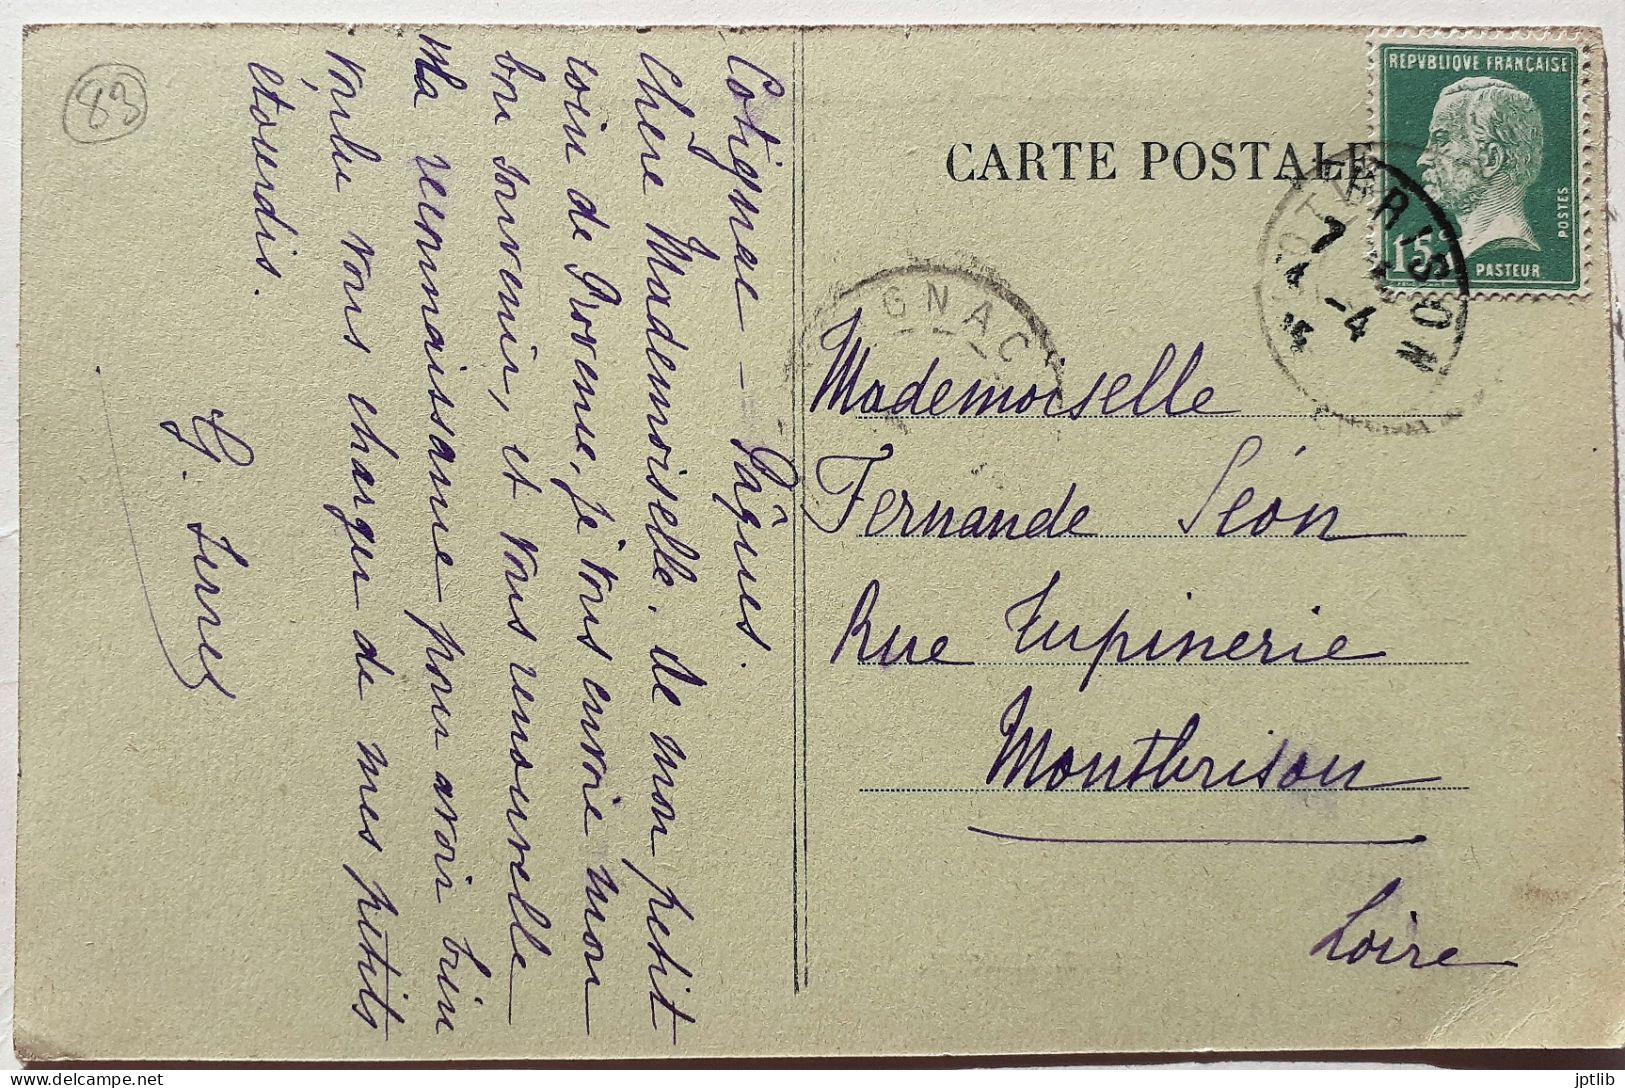 83
Cotignac – Pâques.
Chère Mademoiselle. De mon petit
coin de Provence, je vous envoie mon
bon souvenir, et vous renouvelle
ma reconnaissance pour avoir bien
voulu vous charger de mes petits
étourdis.
CARTE POSTALE
REPVBLIQVE FRANÇAISE
15c
POSTES
PASTEUR
MONTBRISON
7
-4
GNAC
Mademoiselle
Fernande Séon
Rue Tupinerie
Montbrison
Loire
jptlib